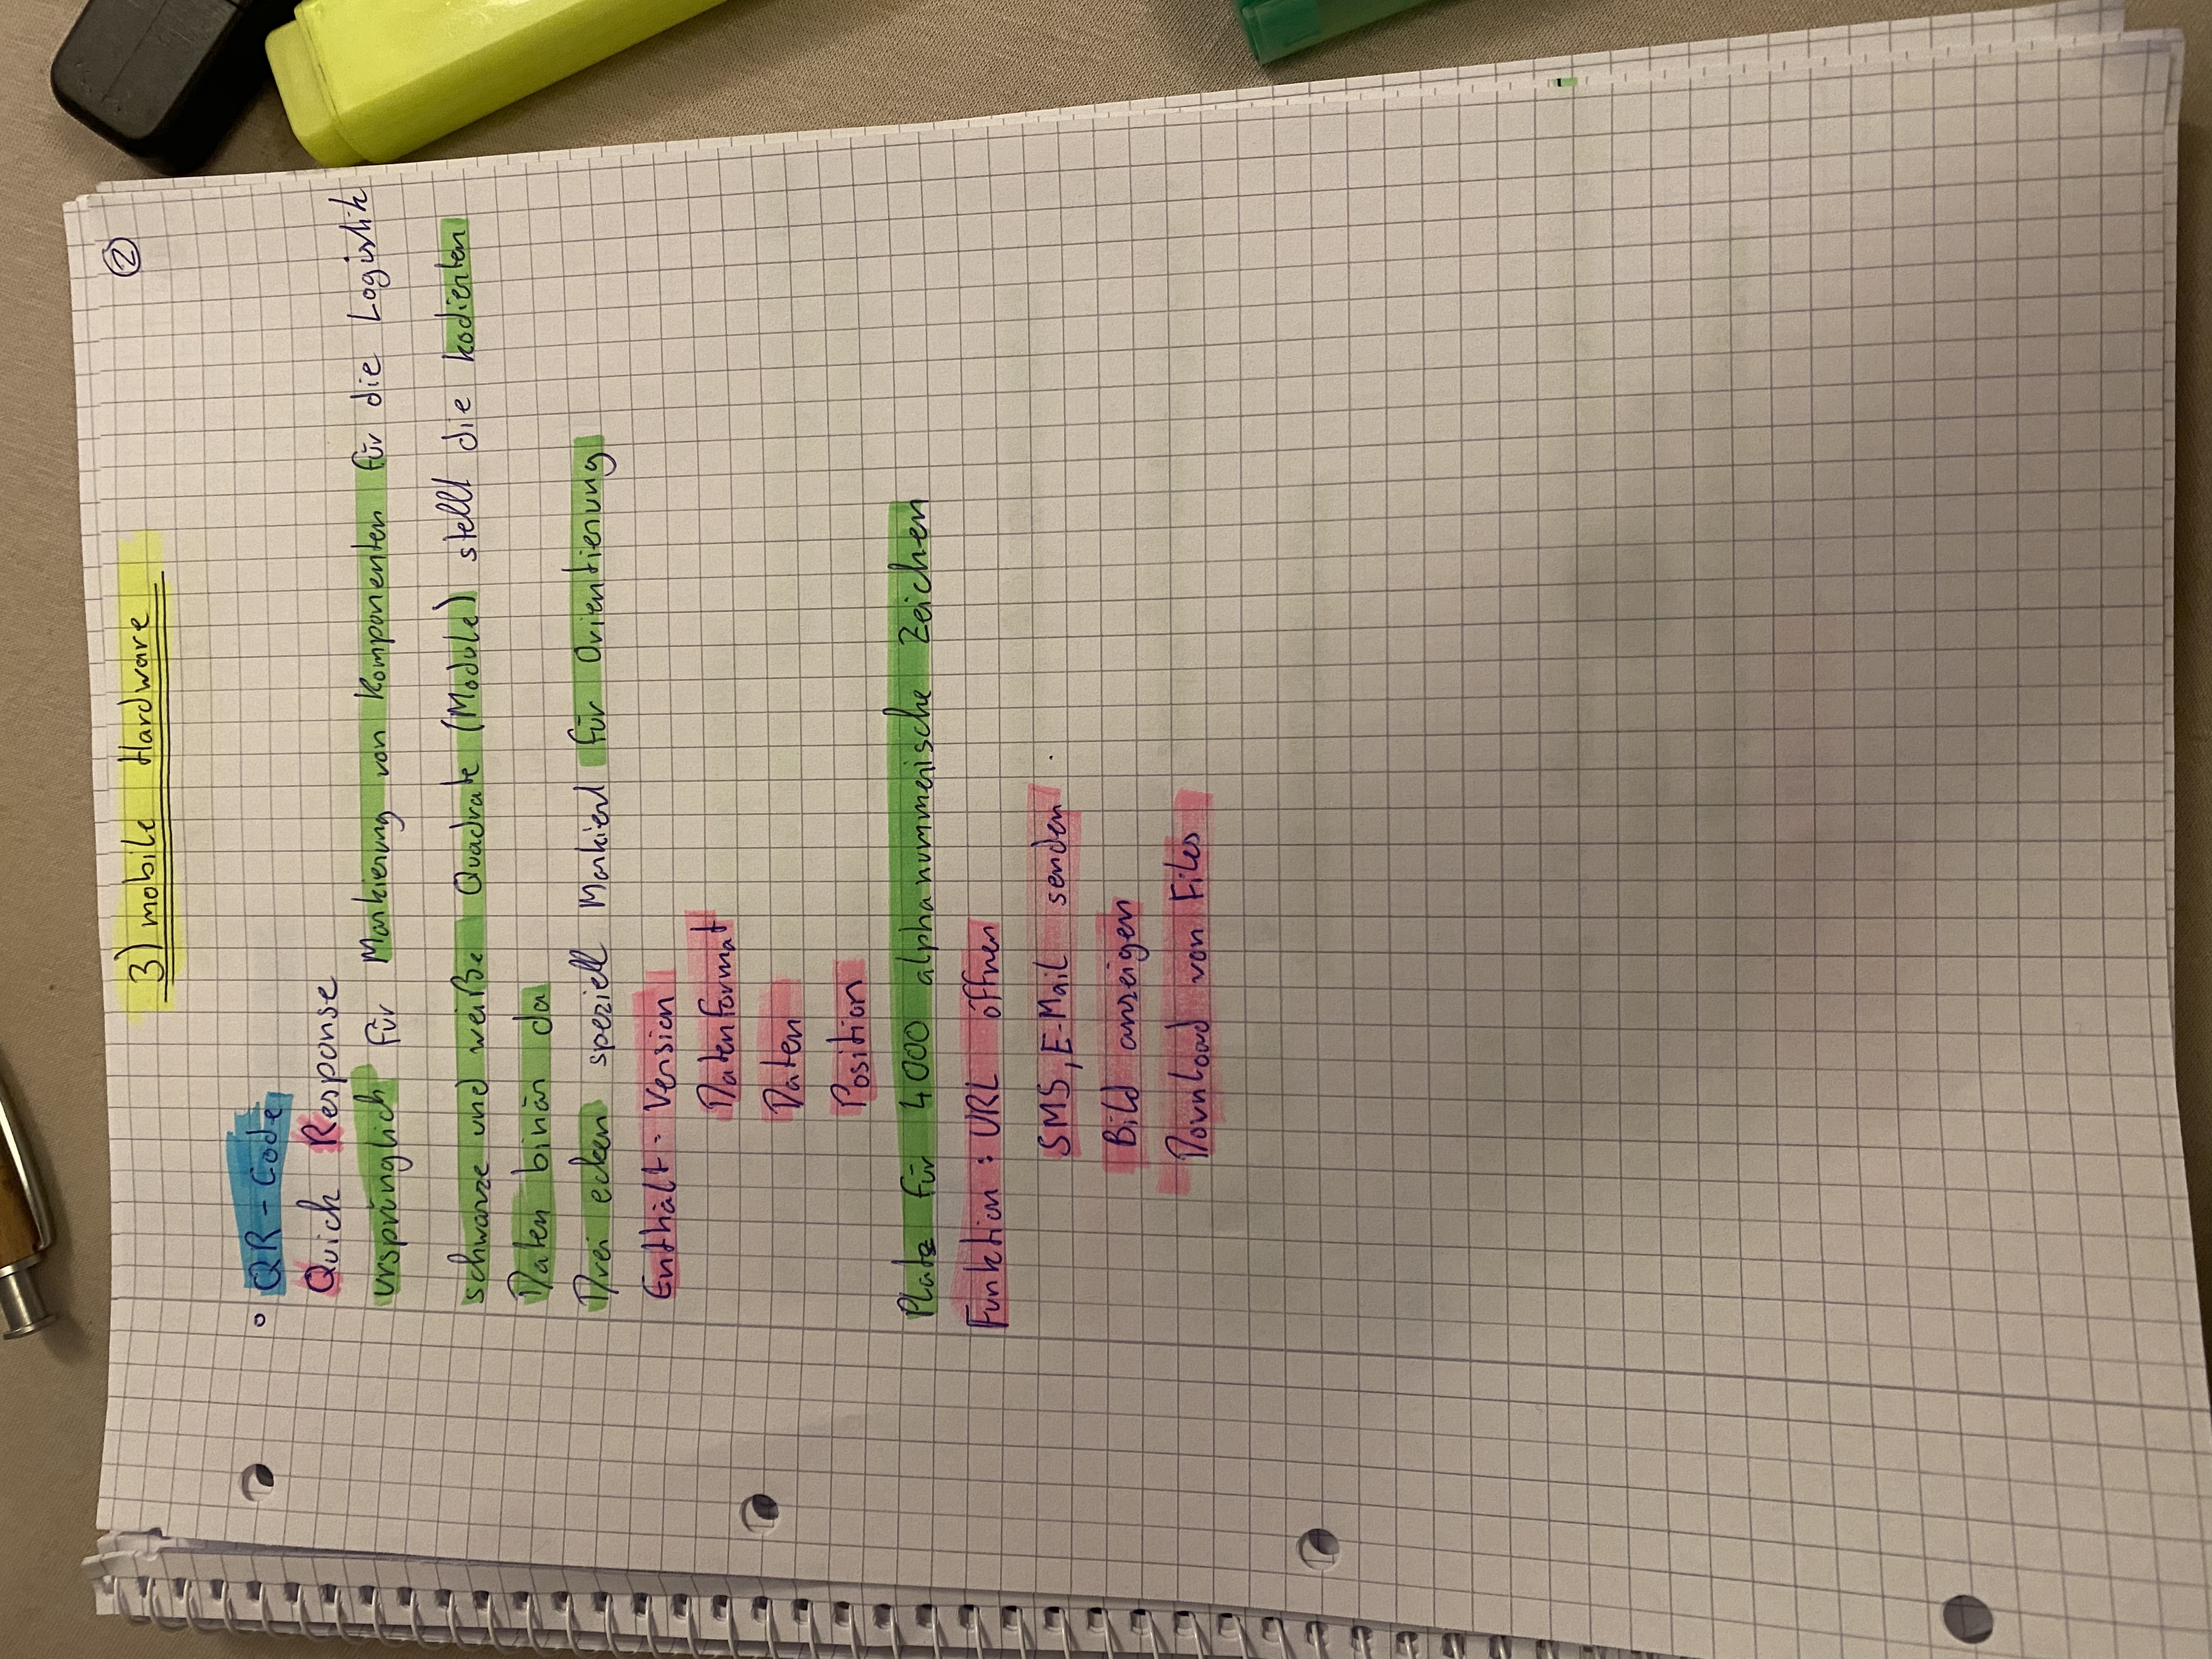 3) mobile Hardware
②
° QR-Code
Quick Response
ursprünglich für Markierung von Komponenten für die Logistik
schwarze und weiße Quadrate (Module) stellt die kodierten
Daten binär da
Drei ecken speziell Markiert für Orientierung
Enthält: Version
Datenformat
Daten
Position
Platz für 4000 alphanummerische Zeichen
Funktion: URL öffnen
SMS, E-Mail senden
Bild anzeigen
Download von Files